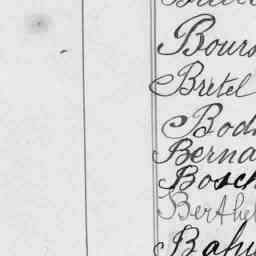 Bours
Bretel
Bod
Berna
Bosch
Berthel
Bahu